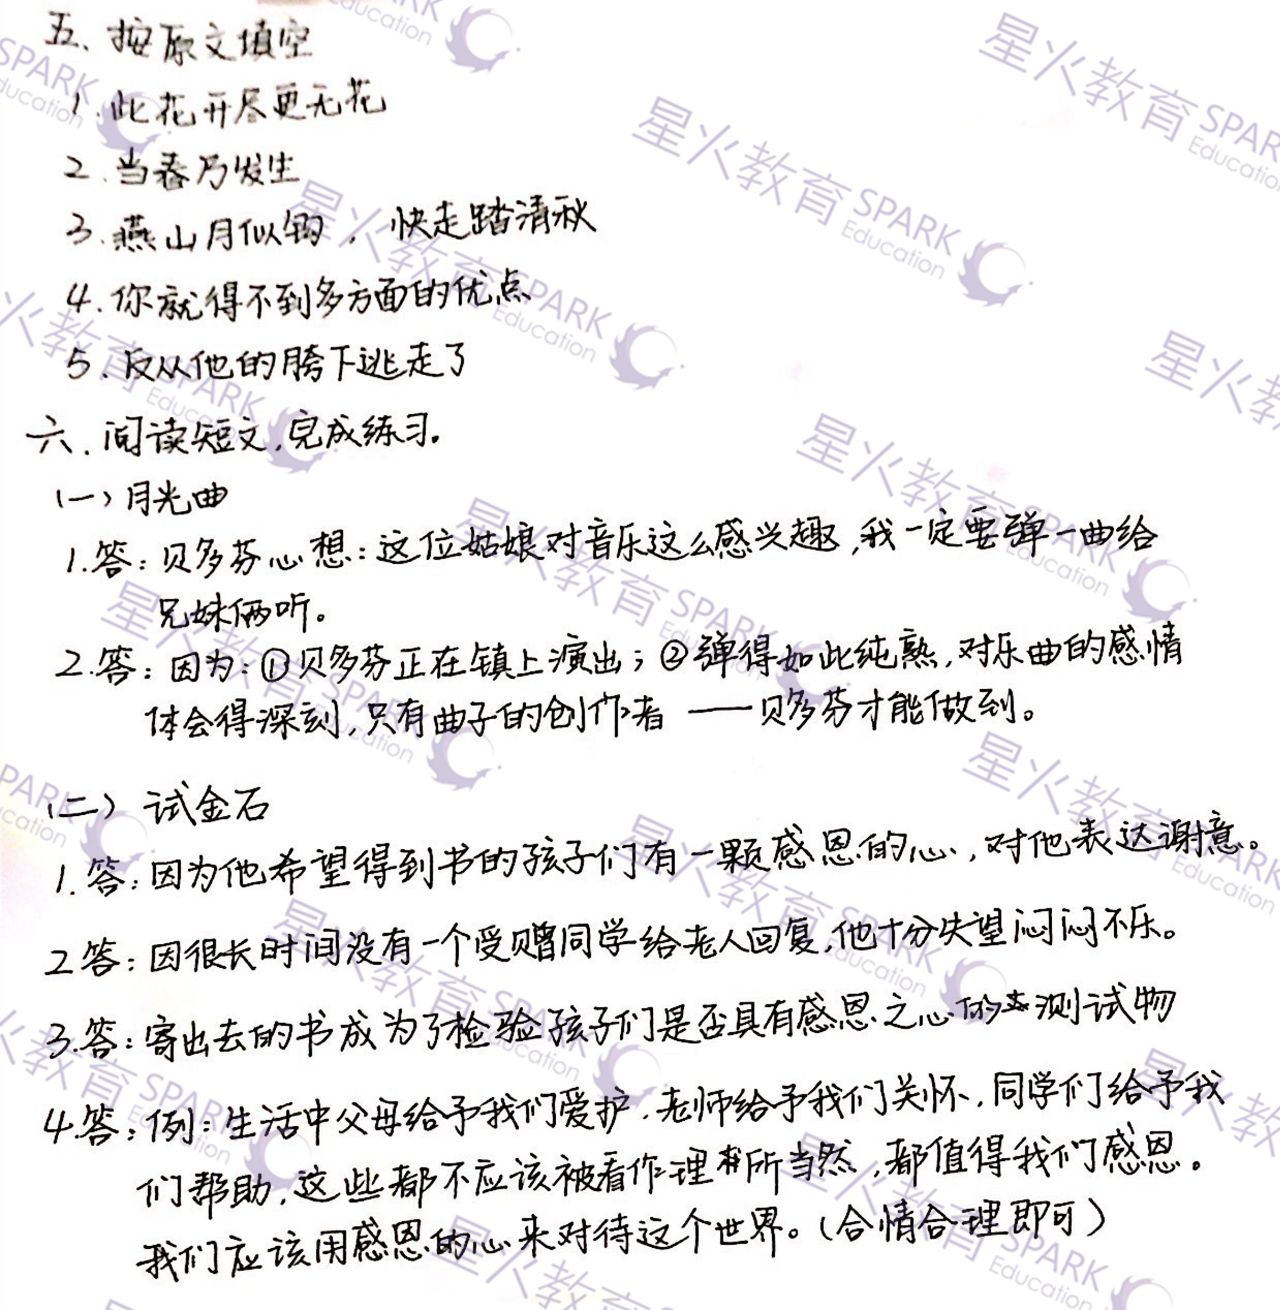 五、按原文填空
1.此花开尽更无花
2.当春乃发生
3.燕山月似钩，快走踏清秋
4.你就得不到多方面的优点
5.反从他的胯下逃走了
六、阅读短文,完成练习。
(一)月光曲
1.答：贝多芬心想：这位姑娘对音乐这么感兴趣,我一定要弹一曲给
兄妹俩听。
2.答：因为：①贝多芬正在镇上演出；②弹得如此纯熟,对乐曲的感情
体会得深刻,只有曲子的创作者——贝多芬才能做到。
(二)试金石
1.答：因为他希望得到书的孩子们有一颗感恩的心,对他表达谢意。
2答：因很长时间没有一个受赠同学给老人回复,他十分失望闷闷不乐。
3.答：寄出去的书成为了检验孩子们是否具有感恩之心的测试物
4.答：例：生活中父母给予我们爱护,老师给予我们关怀,同学们给予我
们帮助,这些都不应该被看作理所当然,都值得我们感恩。
我们应该用感恩的心来对待这个世界。(合情合理即可)
星火教育 SPARK Education